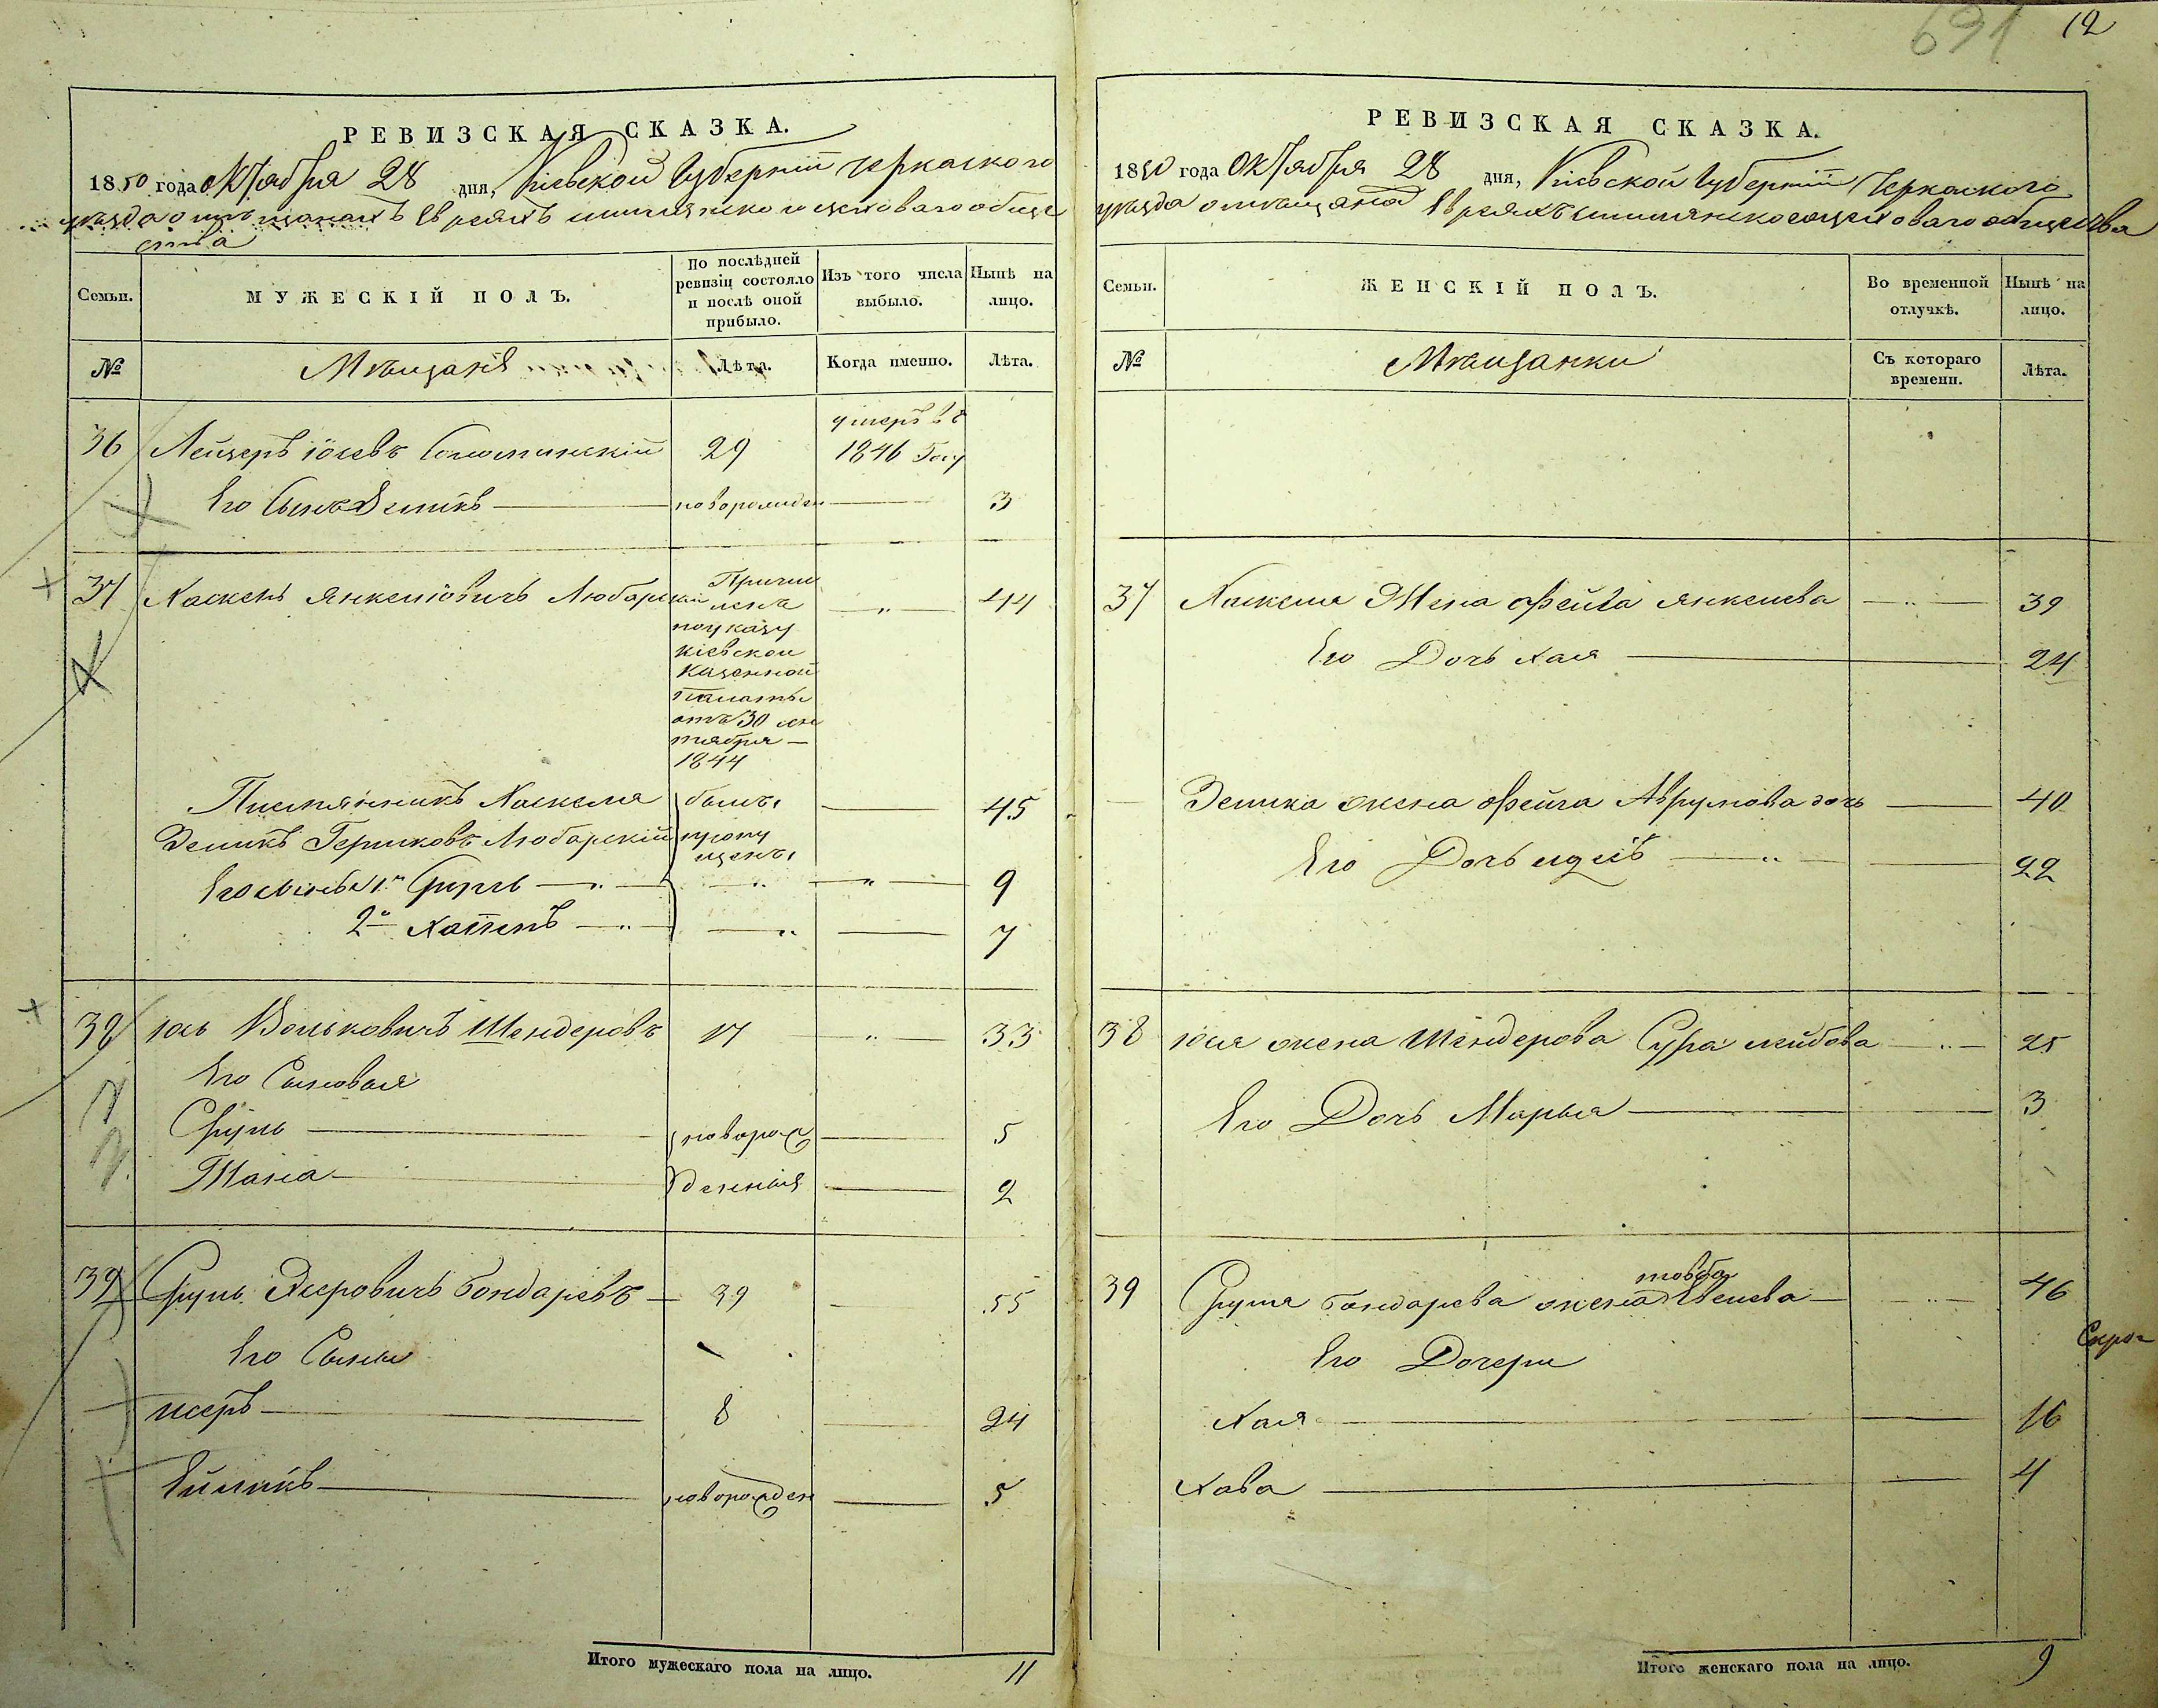 691 12
РЕВИЗСКАЯ СКАЗКА.
1850 года Октября 28 дня, Кіевской Губерніи Черкаского
уезда о мещанахъ Евреяхъ цеховаго обще
ства
Семьи.
МУЖЕСКІЙ ПОЛЪ.
По послѣдней ревизіи состояло и послѣ оной прибыло.
Изъ того числа выбыло.
Нынѣ на лицо.
№
Мѣщанѣ
Лѣта.
Когда именно.
Лѣта.
умеръ въ
36 Лейзеръ Іосевъ 29 1846 Году
Его Сынъ Зеликъ новорожден 3
37 Хаскель Янкелювичъ Любарскій Причи 44
сленъ
по указу
кіевской
Казенной
Палаты
отъ 30 сен
тября
1844
Племянникъ Хаскеля былъ 45
Зеликъ Гершковъ Любарскій пропу
щенъ
Его сыновья 1й Сруль 9
2й 7
38 Іось Вольковичъ Шендеровъ 17 33
Его Сыновья
Сруль новорож 5
денныя 2
39 Сруль Бондаревъ 39 55
Его Сыны
8 24
новорожден 5
Итого мужескаго пола на лицо. 11
РЕВИЗСКАЯ СКАЗКА.
1850 года Октября 28 дня, Кіевской Губерніи Черкаского
уезда о мещанах Евреяхъ цеховаго общества
Семьи.
ЖЕНСКІЙ ПОЛЪ.
Во временной отлучкѣ.
Нынѣ на лицо.
№
Мѣщанки
Съ котораго времени.
Лѣта.
37 Хаскеля Жена Фейга Янкелева 39
Его Дочь Хая 24
Зелика жена Фейга Аврумова дочь 40
Его Дочь 22
38 Іося жена Шендерова Сура Лейбова 25
Его Дочь Марья 3
39 Сруля Бондарева жена 46
Его Дочери
Скре
Хая 16
Хава 4
Итого женскаго пола на лицо. 9